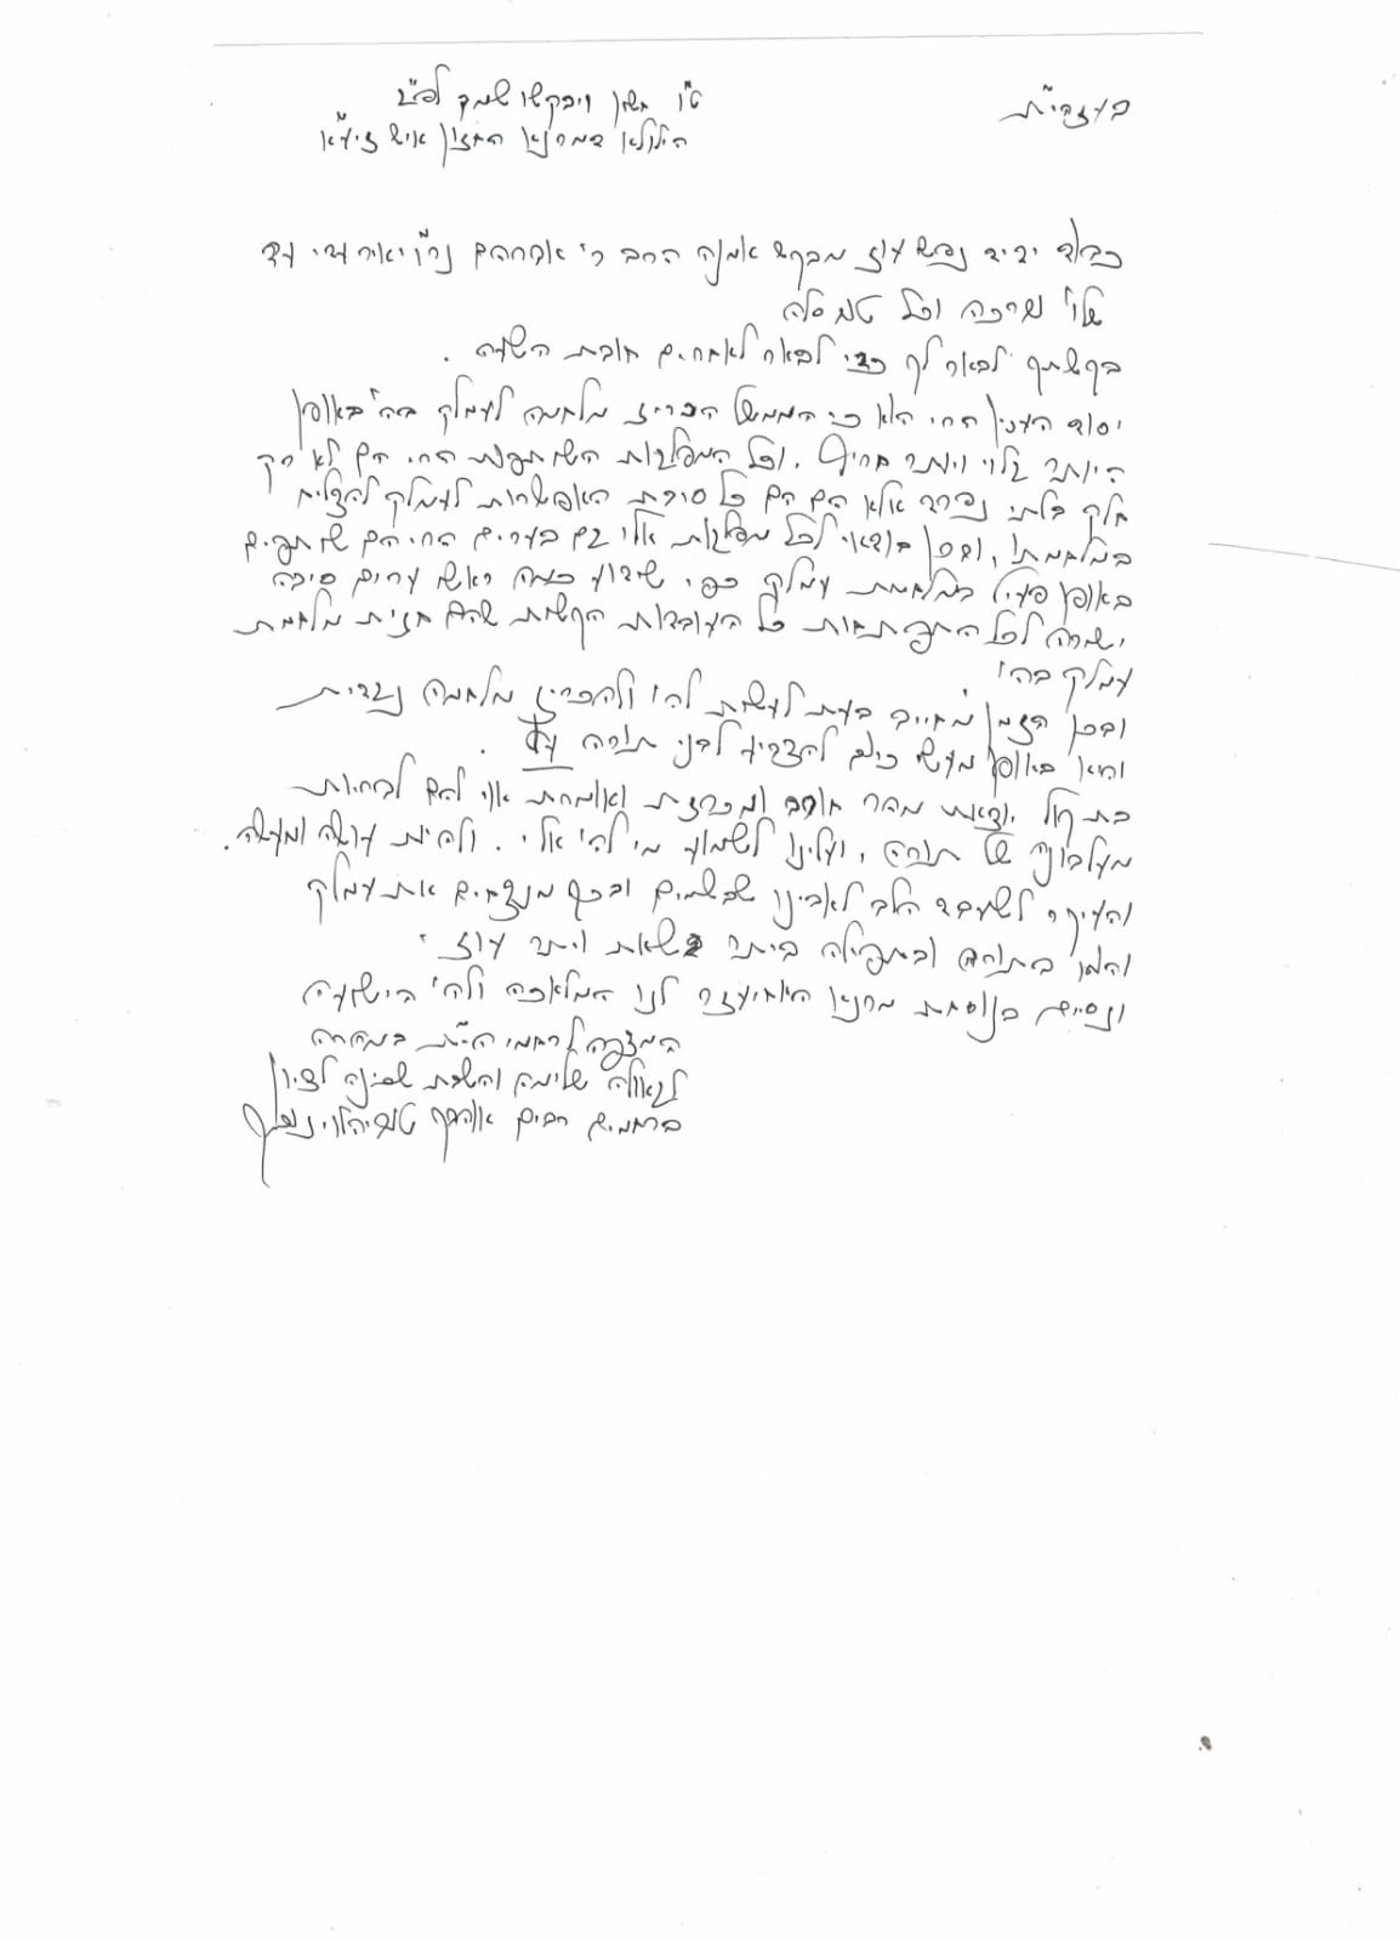 בעזהי"ת
ט"ו חשון ויבקשו שמך לפ"ג
הילולא דמרנא החזון איש זיע"א
כבוד ידיד נפש עוז מבקש אמנה הרב ר' אברהם נר"ו יאיר עדי עד
שלו' וברכה וכל טוב סלה
בקשתך לבאר לך כדי לבאר לאחרים חובת השעה .
יסוד הענין החי הוא כי הממשל הכריז מלחמה לעמלק בה' באופן
היותר גלוי ויותר חריף . וכל המפלגות השותפות החי הם לא רק
חלק בלתי נפרד אלא הם הם כל סיבת האפשרות לעמלק להצליח
במלחמתו , ובכן בודאי לכל מפלגות אלו גם בערים החי הם שותפים
באופן פעיל במלחמת עמלק כפי שידוע כמה ראשי ערים סיבה
ישירה לכל התפתחות כל העובדות הקשות שהם חזית מלחמת
עמלק בה'
ובכן הזמן מחייב בעת לעשות לה' ולהכריז מלחמה נגדית
והוא באופן מעשי כיום להצביע לבני תורה עץ .
בת קול יוצאת מהר חורב ומכרזת ואומרת אוי להם לבריות
מעלבונה של תורה , ועלינו לשמוע מי לה' אלי . ולהיות עושה ומעשה .
והעיקר לשעבד הלב לאבינו שבשמים ובכך מנצחים את עמלק
והמן בתורה ובתפילה ביתר שאת ויתר עוז
ונסיים בנוסחת מרנא האחיעזר לנו המלאכה ולה' הישועה
המצפה לרחמי הי"ת במהרה
לגאולה שלימה והשבת שכינה לציון
ברחמים רבים אוהבך